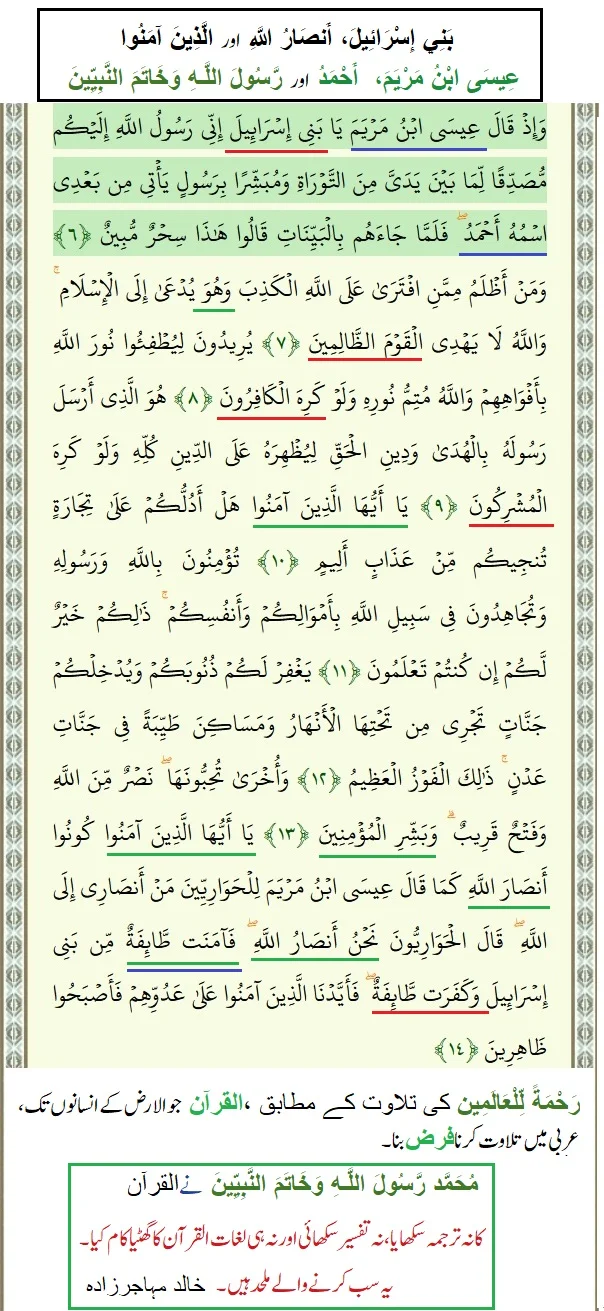 بَنِي إِسْرَائِيلَ، أَنصَارُ اللَّهِ اور الَّذِينَ آمَنُوا
عِيسَى ابْنُ مَرْيَمَ، أَحْمَدُ اور رَّسُولَ اللَّـهِ وَخَاتَمَ النَّبِيِّينَ
وَإِذْ قَالَ عِيسَى ابْنُ مَرْيَمَ يَا بَنِي إِسْرَائِيلَ إِنِّي رَسُولُ اللَّهِ إِلَيْكُم
مُّصَدِّقًا لِّمَا بَيْنَ يَدَيَّ مِنَ التَّوْرَاةِ وَمُبَشِّرًا بِرَسُولٍ يَأْتِي مِن بَعْدِي
اسْمُهُ أَحْمَدُ ۖ فَلَمَّا جَاءَهُم بِالْبَيِّنَاتِ قَالُوا هَٰذَا سِحْرٌ مُّبِينٌ ﴿٦﴾
وَمَنْ أَظْلَمُ مِمَّنِ افْتَرَىٰ عَلَى اللَّهِ الْكَذِبَ وَهُوَ يُدْعَىٰ إِلَى الْإِسْلَامِ ۚ
وَاللَّهُ لَا يَهْدِي الْقَوْمَ الظَّالِمِينَ ﴿٧﴾ يُرِيدُونَ لِيُطْفِئُوا نُورَ اللَّهِ
بِأَفْوَاهِهِمْ وَاللَّهُ مُتِمُّ نُورِهِ وَلَوْ كَرِهَ الْكَافِرُونَ ﴿٨﴾ هُوَ الَّذِي أَرْسَلَ
رَسُولَهُ بِالْهُدَىٰ وَدِينِ الْحَقِّ لِيُظْهِرَهُ عَلَى الدِّينِ كُلِّهِ وَلَوْ كَرِهَ
الْمُشْرِكُونَ ﴿٩﴾ يَا أَيُّهَا الَّذِينَ آمَنُوا هَلْ أَدُلُّكُمْ عَلَىٰ تِجَارَةٍ
تُنجِيكُم مِّنْ عَذَابٍ أَلِيمٍ ﴿١٠﴾ تُؤْمِنُونَ بِاللَّهِ وَرَسُولِهِ
وَتُجَاهِدُونَ فِي سَبِيلِ اللَّهِ بِأَمْوَالِكُمْ وَأَنفُسِكُمْ ۚ ذَٰلِكُمْ خَيْرٌ
لَّكُمْ إِن كُنتُمْ تَعْلَمُونَ ﴿١١﴾ يَغْفِرْ لَكُمْ ذُنُوبَكُمْ وَيُدْخِلْكُمْ
جَنَّاتٍ تَجْرِي مِن تَحْتِهَا الْأَنْهَارُ وَمَسَاكِنَ طَيِّبَةً فِي جَنَّاتِ
عَدْنٍ ۚ ذَٰلِكَ الْفَوْزُ الْعَظِيمُ ﴿١٢﴾ وَأُخْرَىٰ تُحِبُّونَهَا ۖ نَصْرٌ مِّنَ اللَّهِ
وَفَتْحٌ قَرِيبٌ ۗ وَبَشِّرِ الْمُؤْمِنِينَ ﴿١٣﴾ يَا أَيُّهَا الَّذِينَ آمَنُوا كُونُوا
أَنصَارَ اللَّهِ كَمَا قَالَ عِيسَى ابْنُ مَرْيَمَ لِلْحَوَارِيِّينَ مَنْ أَنصَارِي إِلَى
اللَّهِ ۖ قَالَ الْحَوَارِيُّونَ نَحْنُ أَنصَارُ اللَّهِ ۖ فَآمَنَت طَّائِفَةٌ مِّن بَنِي
إِسْرَائِيلَ وَكَفَرَت طَّائِفَةٌ ۖ فَأَيَّدْنَا الَّذِينَ آمَنُوا عَلَىٰ عَدُوِّهِمْ فَأَصْبَحُوا
ظَاهِرِينَ ﴿١٤﴾
رَحْمَةً لِّلْعَالَمِين کی تلاوت کے مطابق، القرآن جو الارض کے انسانوں تک،
عربی میں تلاوت کرنا فرض بنا۔
مُحَمَّد رَّسُولَ اللَّـهِ وَخَاتَمَ النَّبِيِّينَ نے القرآن
کا نہ ترجمہ سکھایا، نہ تفسیر سکھائی اور نہ ہی لغات القرآن کا گھٹیا کام کیا۔
یہ سب کرنے والے ملحد ہیں۔ خالد مہاجرزادہ